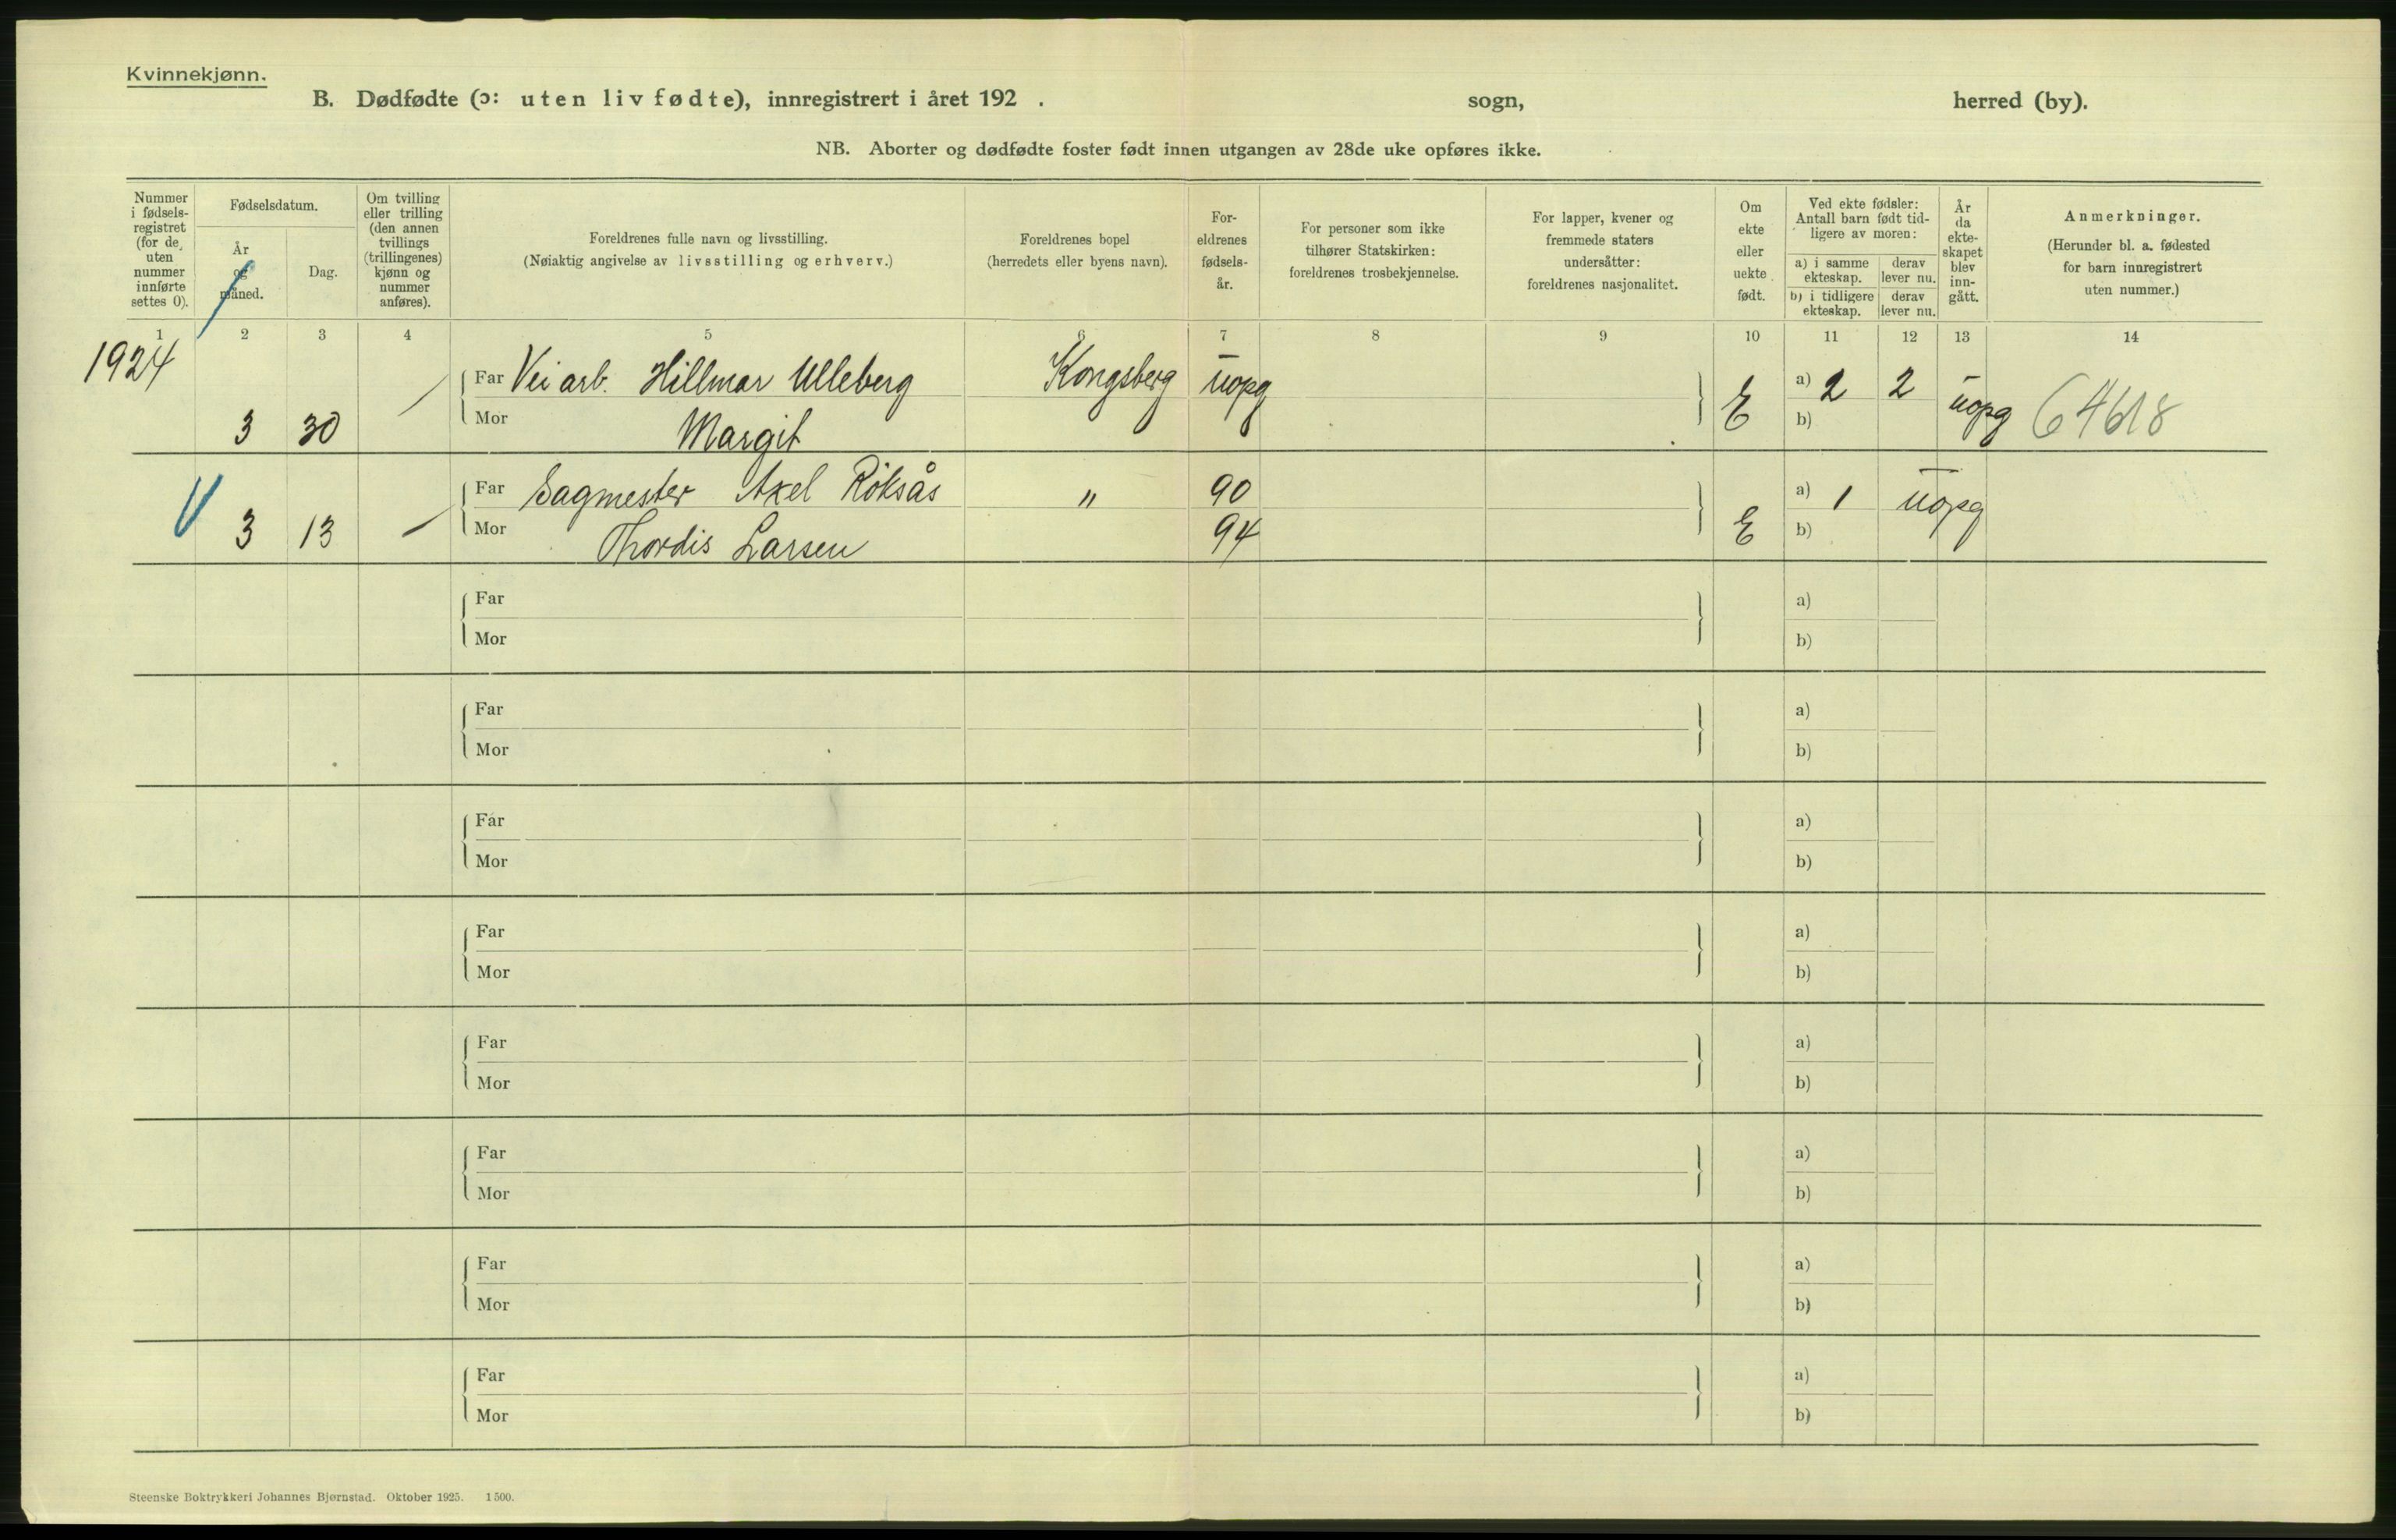 Kvinnekjønn.
B. Dødfødte (ɔ: uten liv fødte), innregistrert i året 192 . sogn, herred (by).
NB. Aborter og dødfødte foster født innen utgangen av 28de uke opføres ikke.
Nummer i fødsels- registret (for de uten nummer innførte settes 0).
Fødselsdatum.
År og måned.
Dag.
Om tvilling eller trilling (den annen tvillings (trillingenes) kjønn og nummer anføres).
Foreldrenes fulle navn og livsstilling.
(Nøiaktig angivelse av livsstilling og erhverv.)
Foreldrenes bopel
(herredets eller byens navn).
For- eldrenes fødsels- år.
For personer som ikke tilhører Statskirken: foreldrenes trosbekjennelse.
For lapper, kvener og fremmede staters undersåtter: foreldrenes nasjonalitet.
Om ekte eller uekte født.
Ved ekte fødsler: Antall barn født tid- ligere av moren:
a) i samme ekteskap. derav lever nu.
b) i tidligere ekteskap. derav lever nu.
År da ekte- skapet blev inn- gått.
Anmerkninger.
(Herunder bl. a. fødested for barn innregistrert uten nummer.)
1 2 3 4 5 6 7 8 9 10 11 12 13 14
1924
Far Vei arb. Hillmar Ulleberg Kongsberg uopg a) 2 2 uopg 64618
3 30 Mor Margit E b)
Far Sagmester Axel Röksås " 90 a) 1 uopg
3 13 Mor Thordis Larsen 94 E b)
Far a)
Mor b)
Far a)
Mor b)
Far a)
Mor b)
Far a)
Mor b)
Far a)
Mor b)
Far a)
Mor b)
Far a)
Mor b)
Far a)
Mor b)
Steenske Boktrykkeri Johannes Bjørnstad. Oktober 1925. 1500.